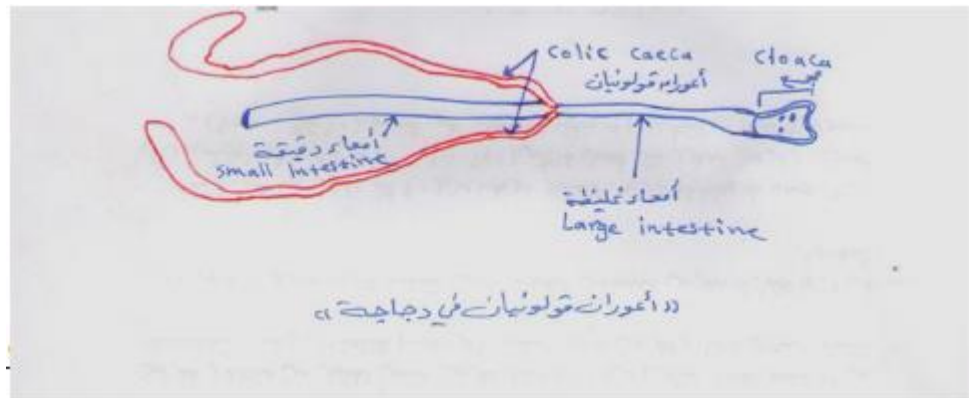 colic caeca
أعوران قولونيان
cloaca
مجمع
أمعاء دقيقة
small intestine
أمعاء غليظة
Large intestine
((أعوران قولونيان في دجاجة))